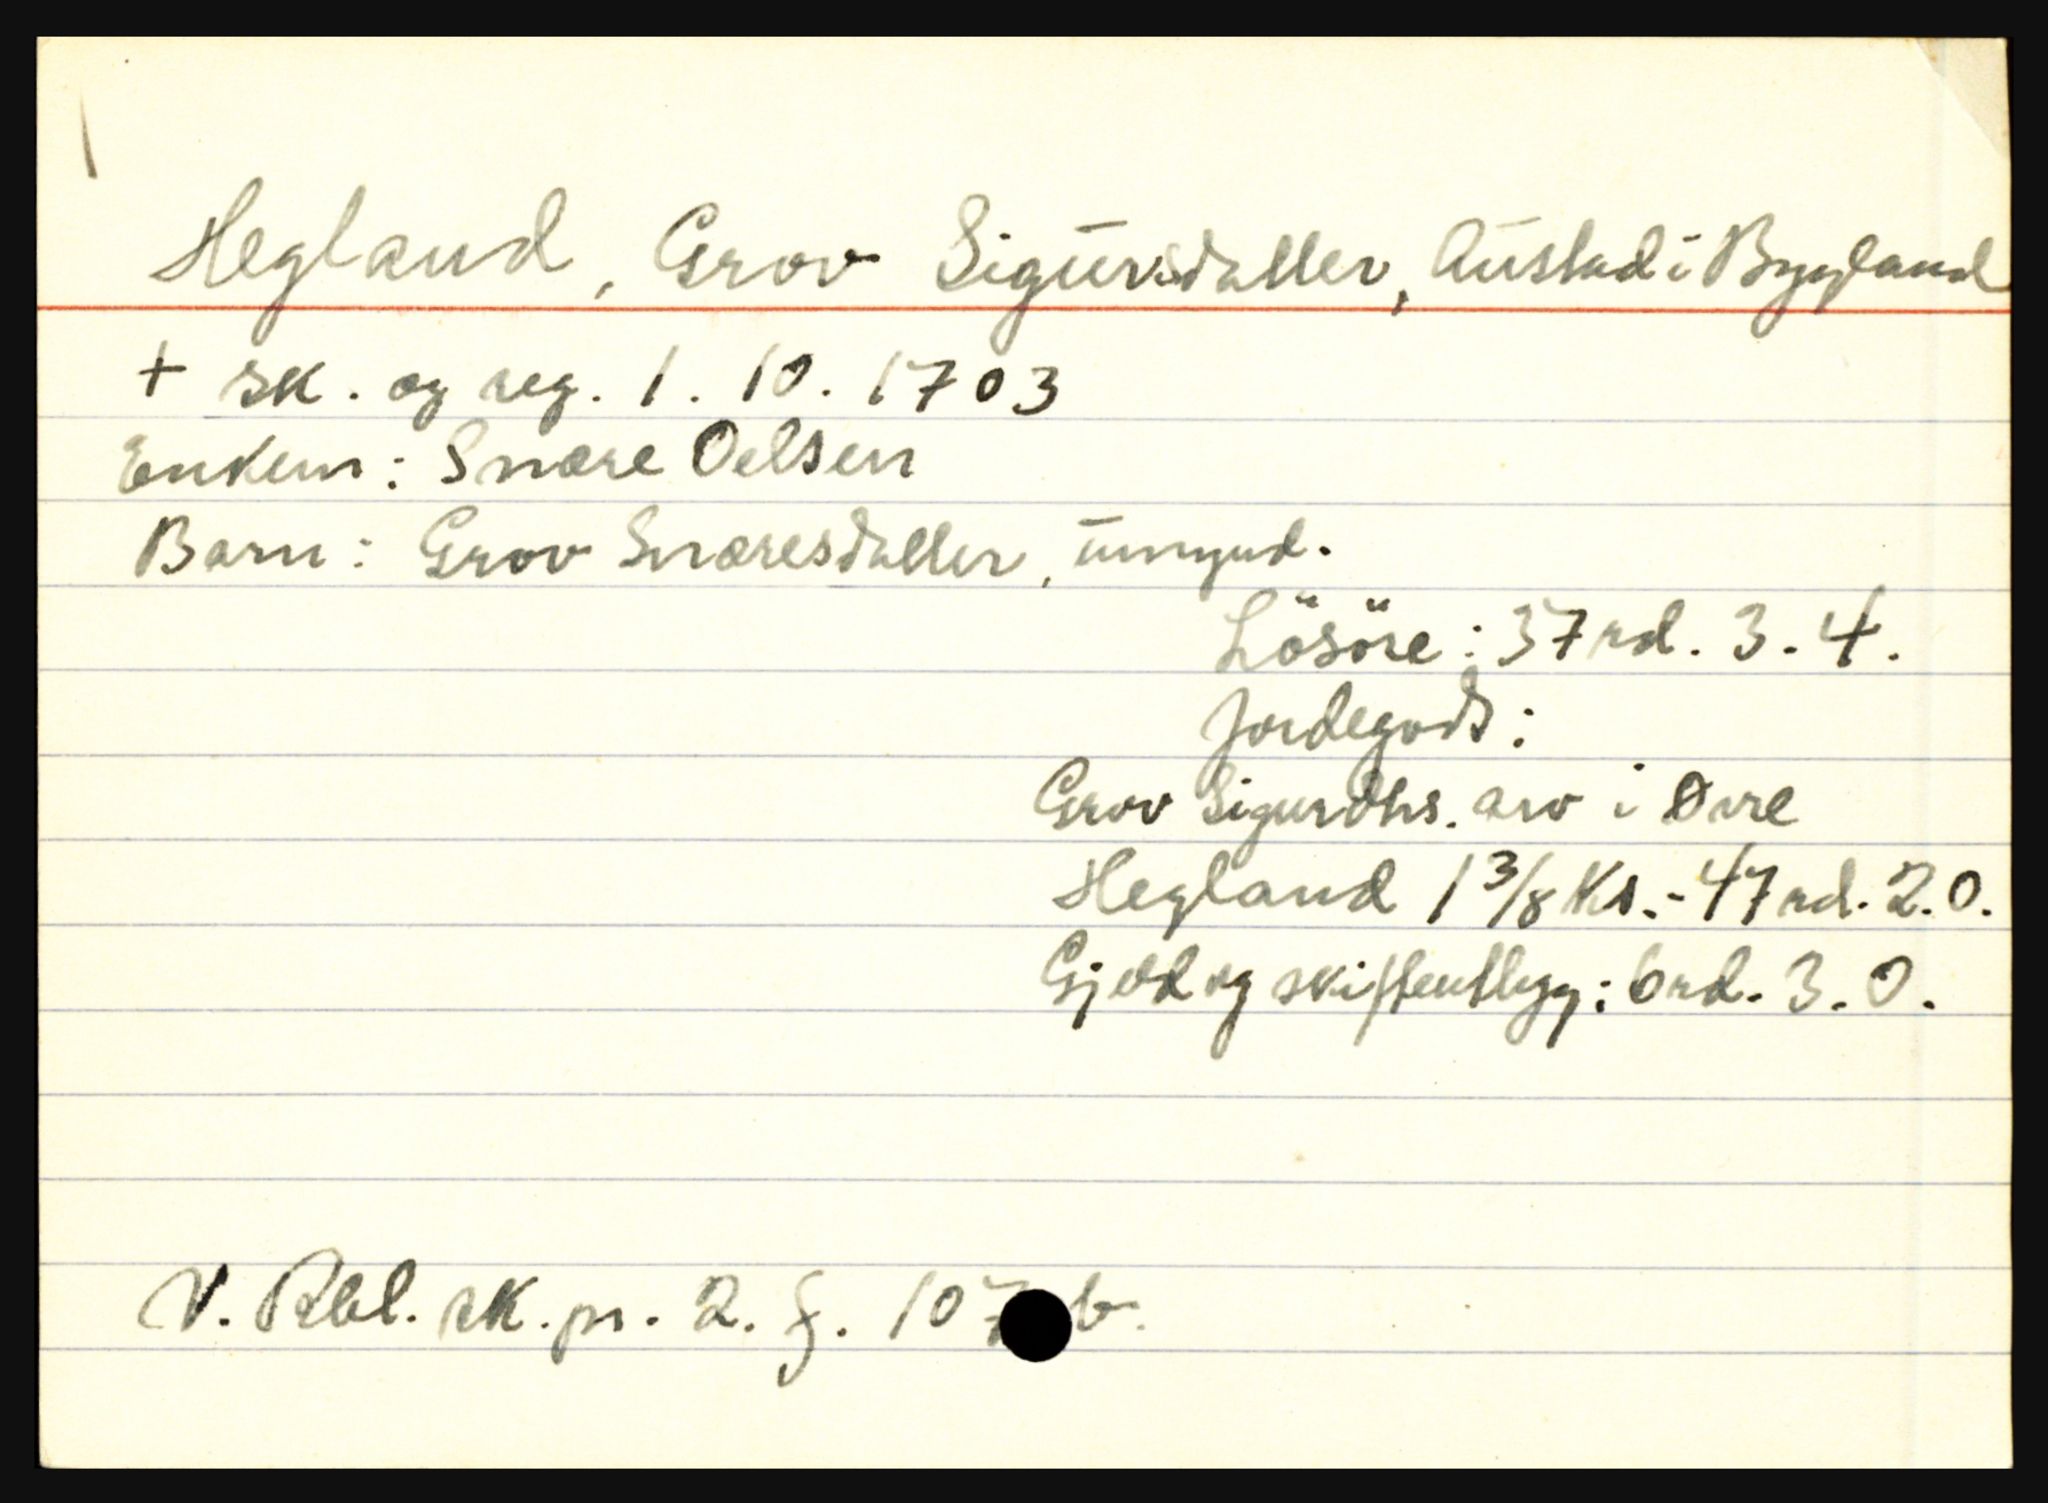 Hegland, Grov Sigursdatter, Austad i Bygland
+ sk. og reg. 1. 10. 1703
Enkem: Snære Oelsen
Barn: Grov Snæresdatter, umynd.
Lösöre: 37 rd. 3. 4.
Jordegods:
Grov Sigurdtrs. arv i Øvre
Hegland 1 3/8 Ks. - 47 rd. 2. 0.
Gjeld og skiftentlegg: 6 rd. 3. 0.
V. Rbl. sk. pr. 2. f. 107 b.